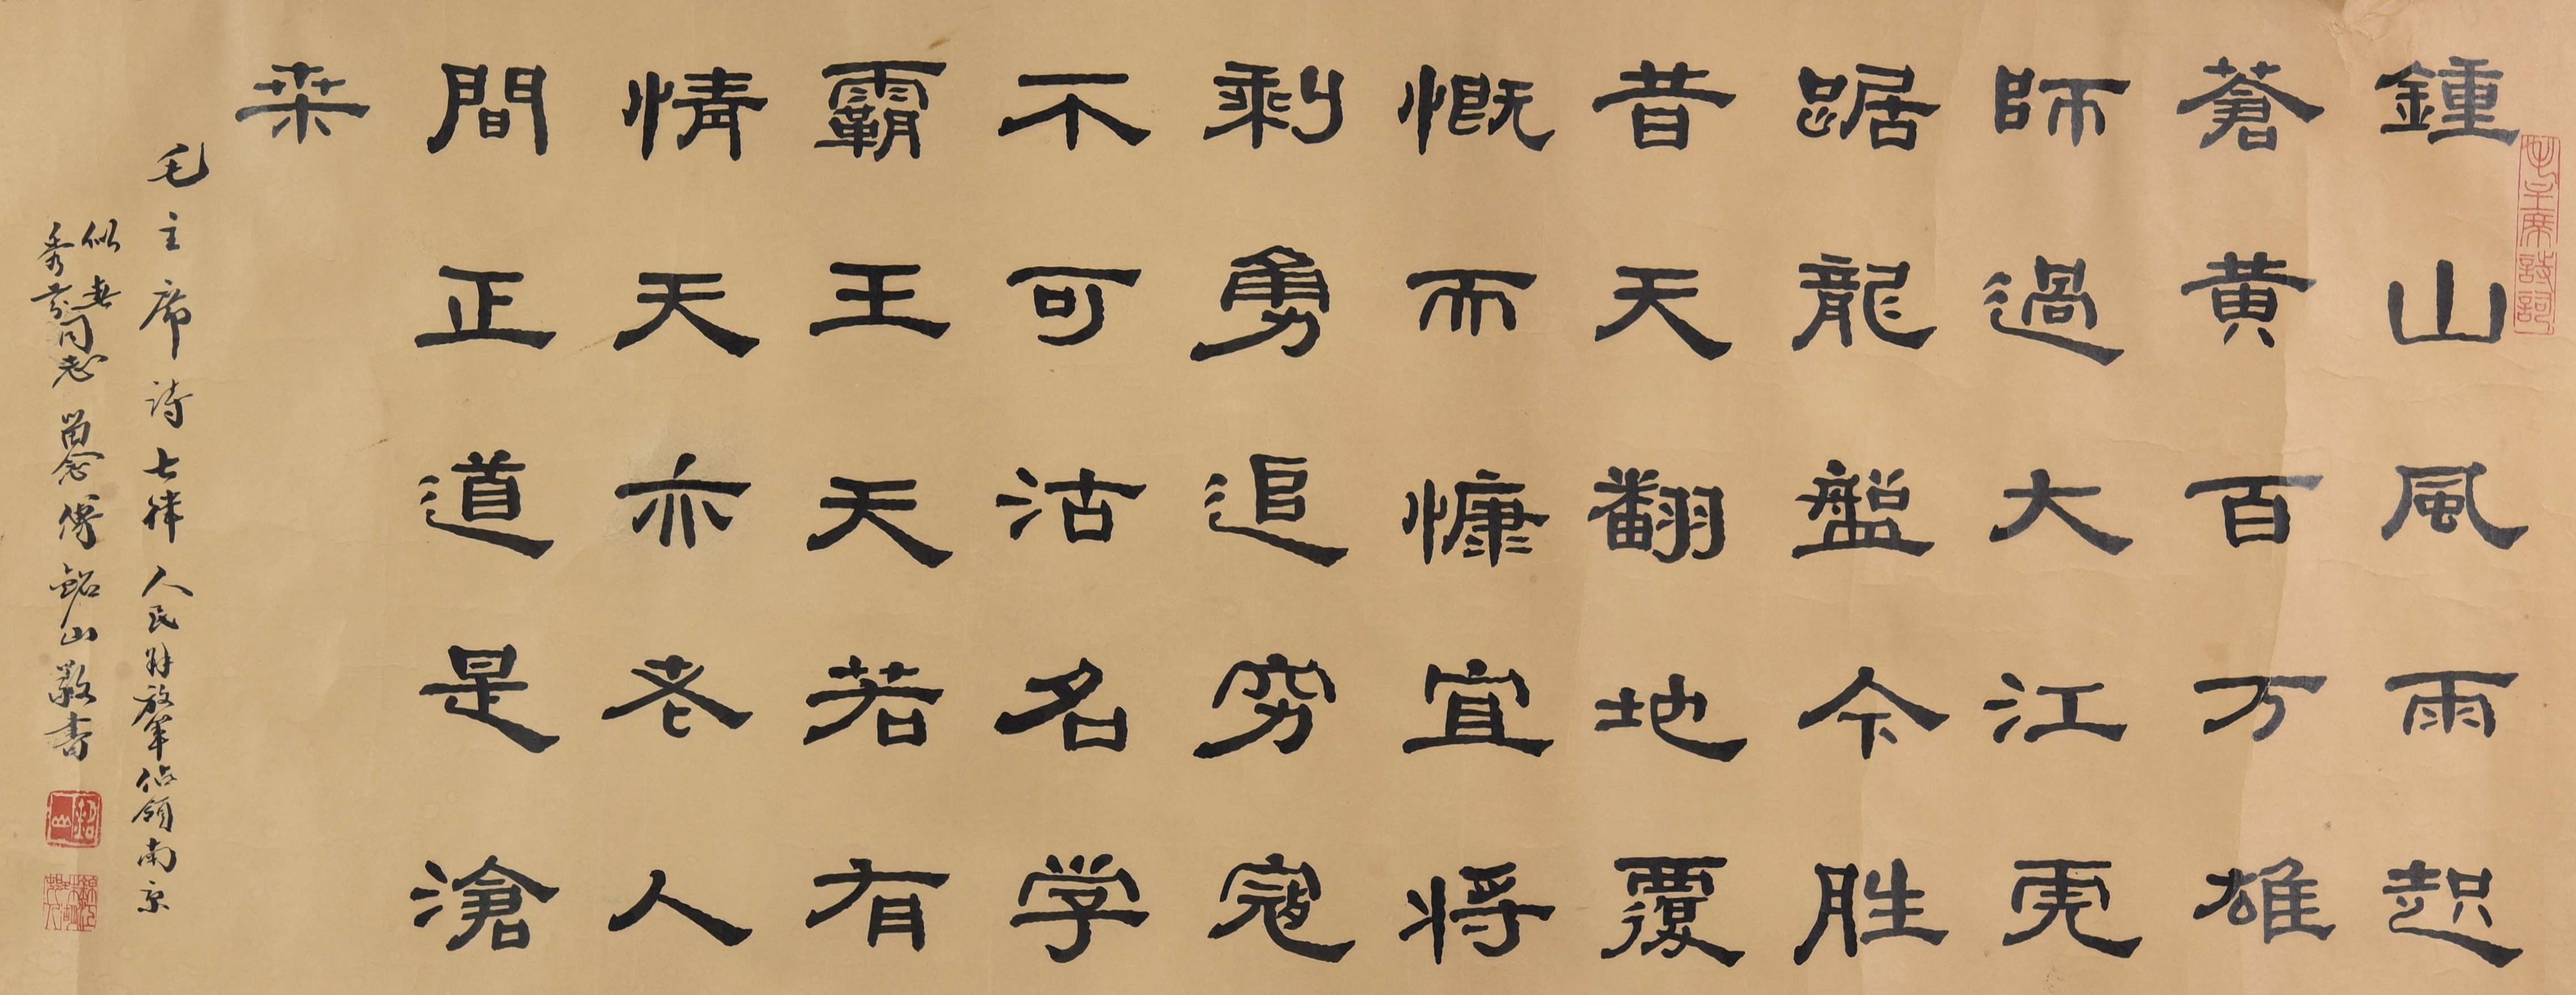 毛主席詩詞
鍾山風雨起
蒼黄百万雄
師過大江虎
踞龍盤今胜
昔天翻地覆
慨而慷宜将
剩勇追穷寇
不可沽名学
霸王天若有
情天亦老人
間正道是滄
桒
毛主席詩七律人民解放軍佔領南京
似春
秀芬同志留念傅鉊山敬書
鉊山